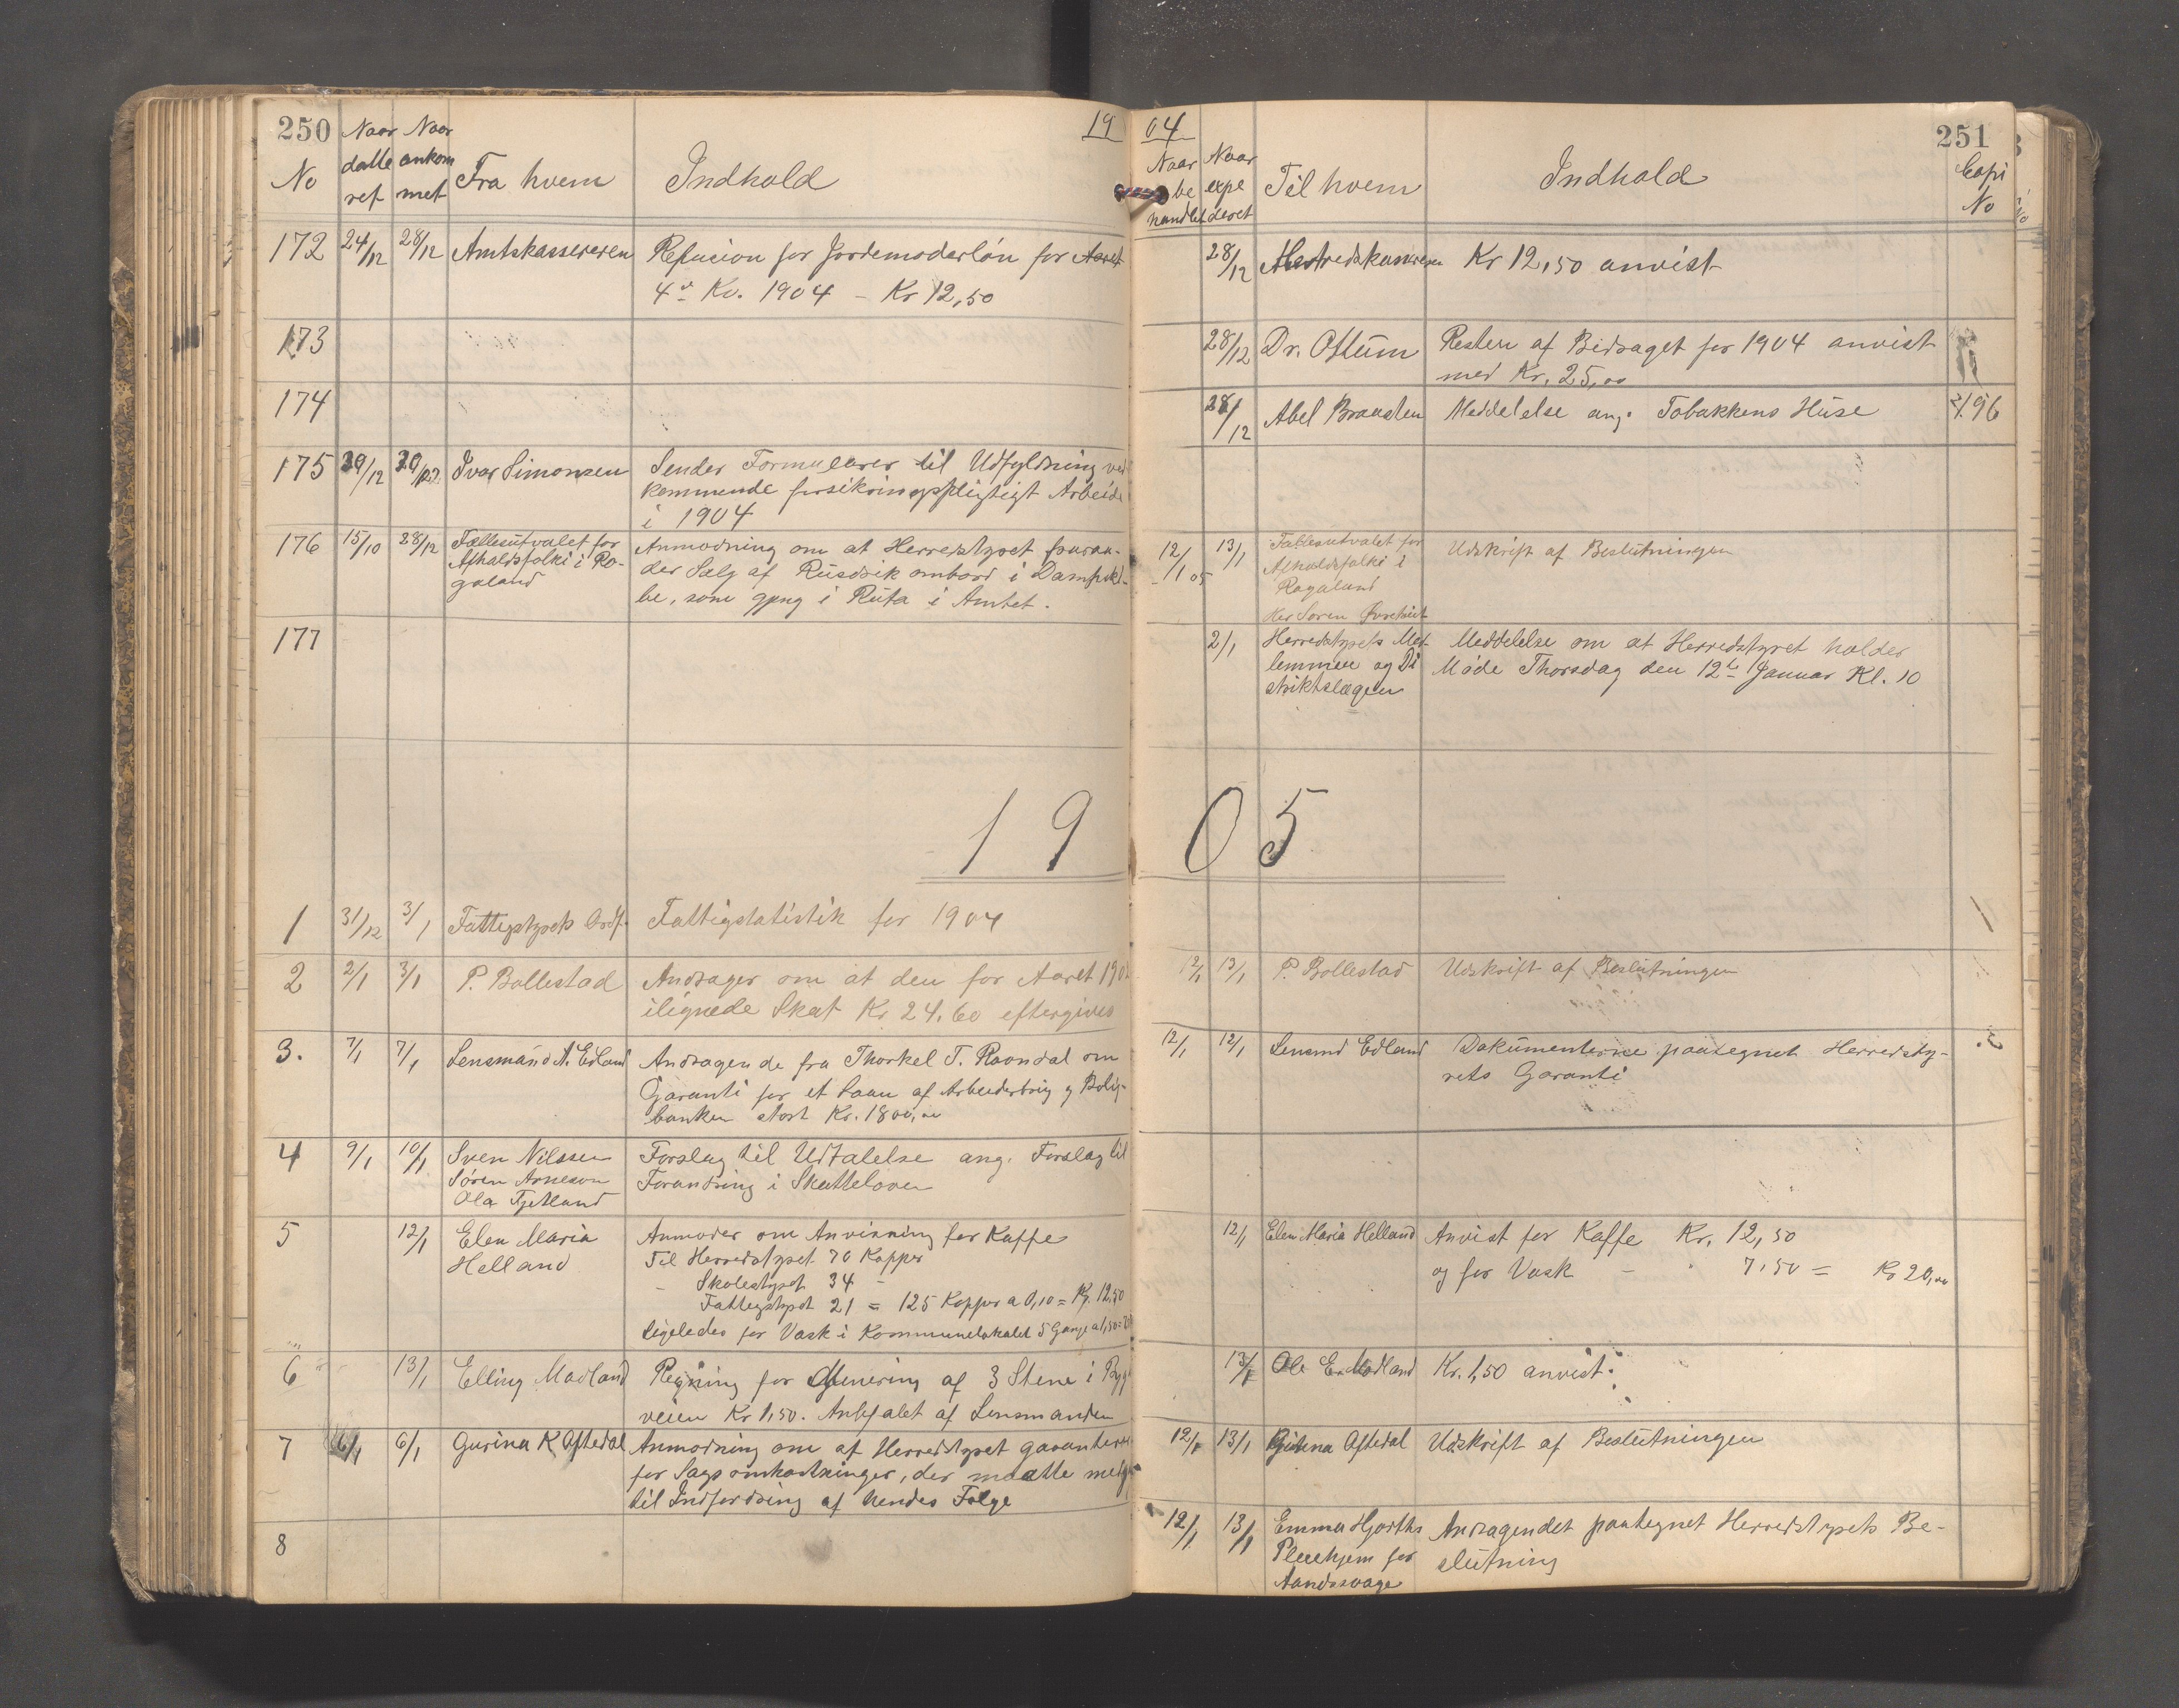 250 Naar Naar 19
No datte ankom Fra hvem Indhold
ret met
172 24/12 28/12 Amtskassereren Refusion for Jordemoderløn for Aaret
4de Kv. 1904 – Kr 12,50
173
174
175 30/12 Ivar Simonsen Sender Formularer til Udfyldning ved
kommende forsikringspligtigt Arbeide
i 1904
176 15/10 28/12 Fællesutvalet for Anmodning om at Herredstyret
Afhaldsfolki i Ro- der Salg af Rusdrik ombord i
galand be, som gjeng i Ruta i Amtet.
177
19
1 31/12 3/1 Fattigstyrets Ordf. Fattigstatistik for 1904
2 2/1 3/1 P. Bollestad Andrager om at den for Aaret
ilignede Skat Kr 24.60 eftergives
3. 7/1 7/1 Lensmand A. Edland Andragende fra Thorkel T. Ravndal om
Garanti for et Laan af Arbeiderbrug og Bolig-
banken stort Kr. 1800,00
4 9/1 10/1 Sven Nilssen Forslag til Udtalelse ang. Forslag til
Søren Arneson Forandring i Skatteloven
Ola Tjetland
5 12/1 Elen Maria Anmoder om Anvisning for Kaffe
Helland Til Herredstyret 70 Kopper
– Skolestyret 34 –
Fattigstyret 21 = 125 Kopper a 0,10 = Kr. 12,50
Ligeledes for Vask i Kommunelokalet 5 Gange a 1,50 =
6 13/1 Elling Madland Regning for af 3 Stene i
veien Kr 1,50. Anbefalet af Lensmanden
7 6/1 6/1 Gurina K Oftedal Anmodning om at Herredstyret
for Sagsomkostninger, der maatte
til Indfordring af hendes Følge
8
04 251
Naar Naar Copi
be expe Til hvem Indhold No
handlet deret
28/12 Herredskasseren Kr 12,50 anvist
28/12 Dr. Oftum Resten af Bidraget for 1904 anvist
med Kr. 25,00
28/12 Abel Meddelelse ang. Tobakkens Huse 96
12/1 05 13/1 Fællesutvalet for Udskrift af Beslutningen
Afholdsfolki i
Rogaland
Søren
2/1 Herredstyrets Med- Meddelelse om at Herredstyret holder
lemmer og Di Møde Thorsdag den 12te Januar Kl. 10
striktslægen
05
12/1 13/1 P. Bollestad Udskrift af Beslutningen
12/1 12/1 Lensmd Edland Dokumenterne paategnet Herredsty-
rets Garanti
12/1 Elen Maria Helland Anvist for Kaffe Kr. 12,50
og for Vask – 7,50 = Kr 20,00
13/1 Ole E. Madland Kr. 1,50 anvist.
12/1 13/1 Gurina Oftedal Udskrift af Beslutningen
12/1 13/1 Emma Hjorths Andragendet paategnet Herredstyrets Be-
Pleiehjem for slutning
Aandssvage